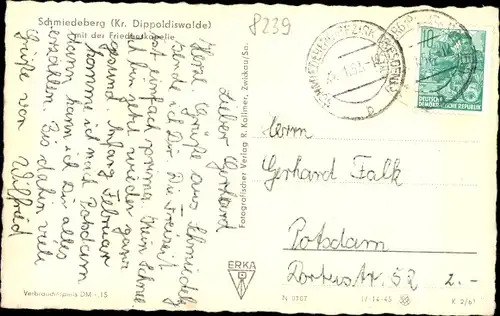 Schmiedeberg (Kr. Dippoldiswalde)
mit der Friedenskapelle
8239
Lieber Gerhard
Herzl. Grüße aus Schmiedebg
sende ich Dir. Die Freizeit
ist einfach prima. Kein Schnee
Ich bin jetzt wieder ganz
gesund. Anfang Februar
komme ich nach Potsdam
dann kann ich Dir alles
erzählen. Bis dahin viele
Grüße von Wilfried
Fotografischer Verlag R. Kallmer, Zwickau/Sa.
SCHMIEDEBERG
10
DEUTSCHE
DEMOKRATISCHE REPUBLIK
Herrn
Gerhard Falk
Potsdam
Str. 52 2.-
ERKA
Verbraucherpreis DM -,15
N 0307
K 2/61